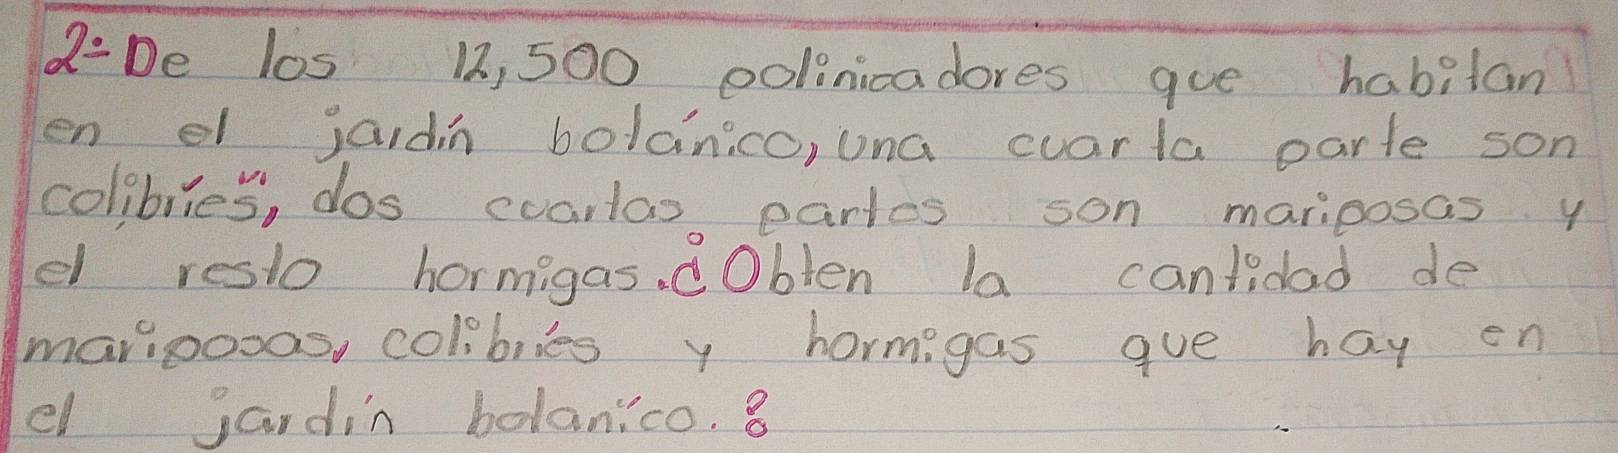 2÷De los 12,500 polinicadores que habitan
en el jardín botánico, una cuarta parte son
colibríes, dos cuartas partes son mariposas y
el resto hormigas. ¿Obten la cantidad de
mariposas, colibríes y hormigas que hay en
el jardín botaníco.?